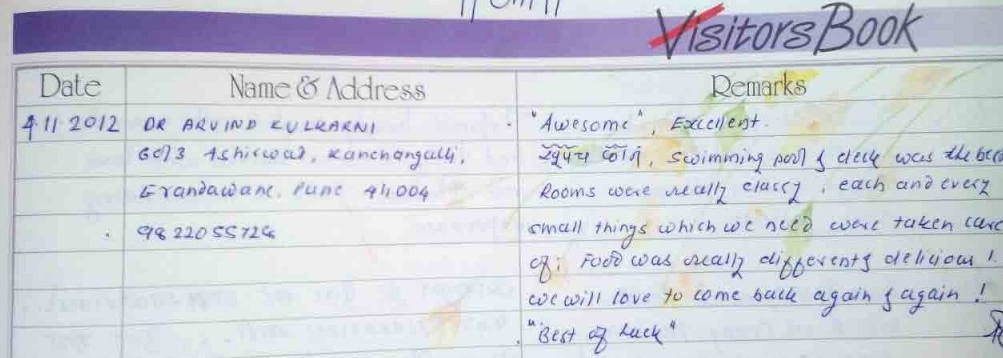 Visitors Book
Date Name & Address Remarks
4.11.2012 DR ARVIND KULKARNI "Awesome", Excellent.
60/3 Ashirwad, Kanchangalli, swimming pool & deck was the best
Erandawane, Pune 411004 Rooms were really classy, each and every
9822055724 small things which we need were taken care
of; Food was really different & delicious !
we will love to come back again & again !
"Best of Luck"